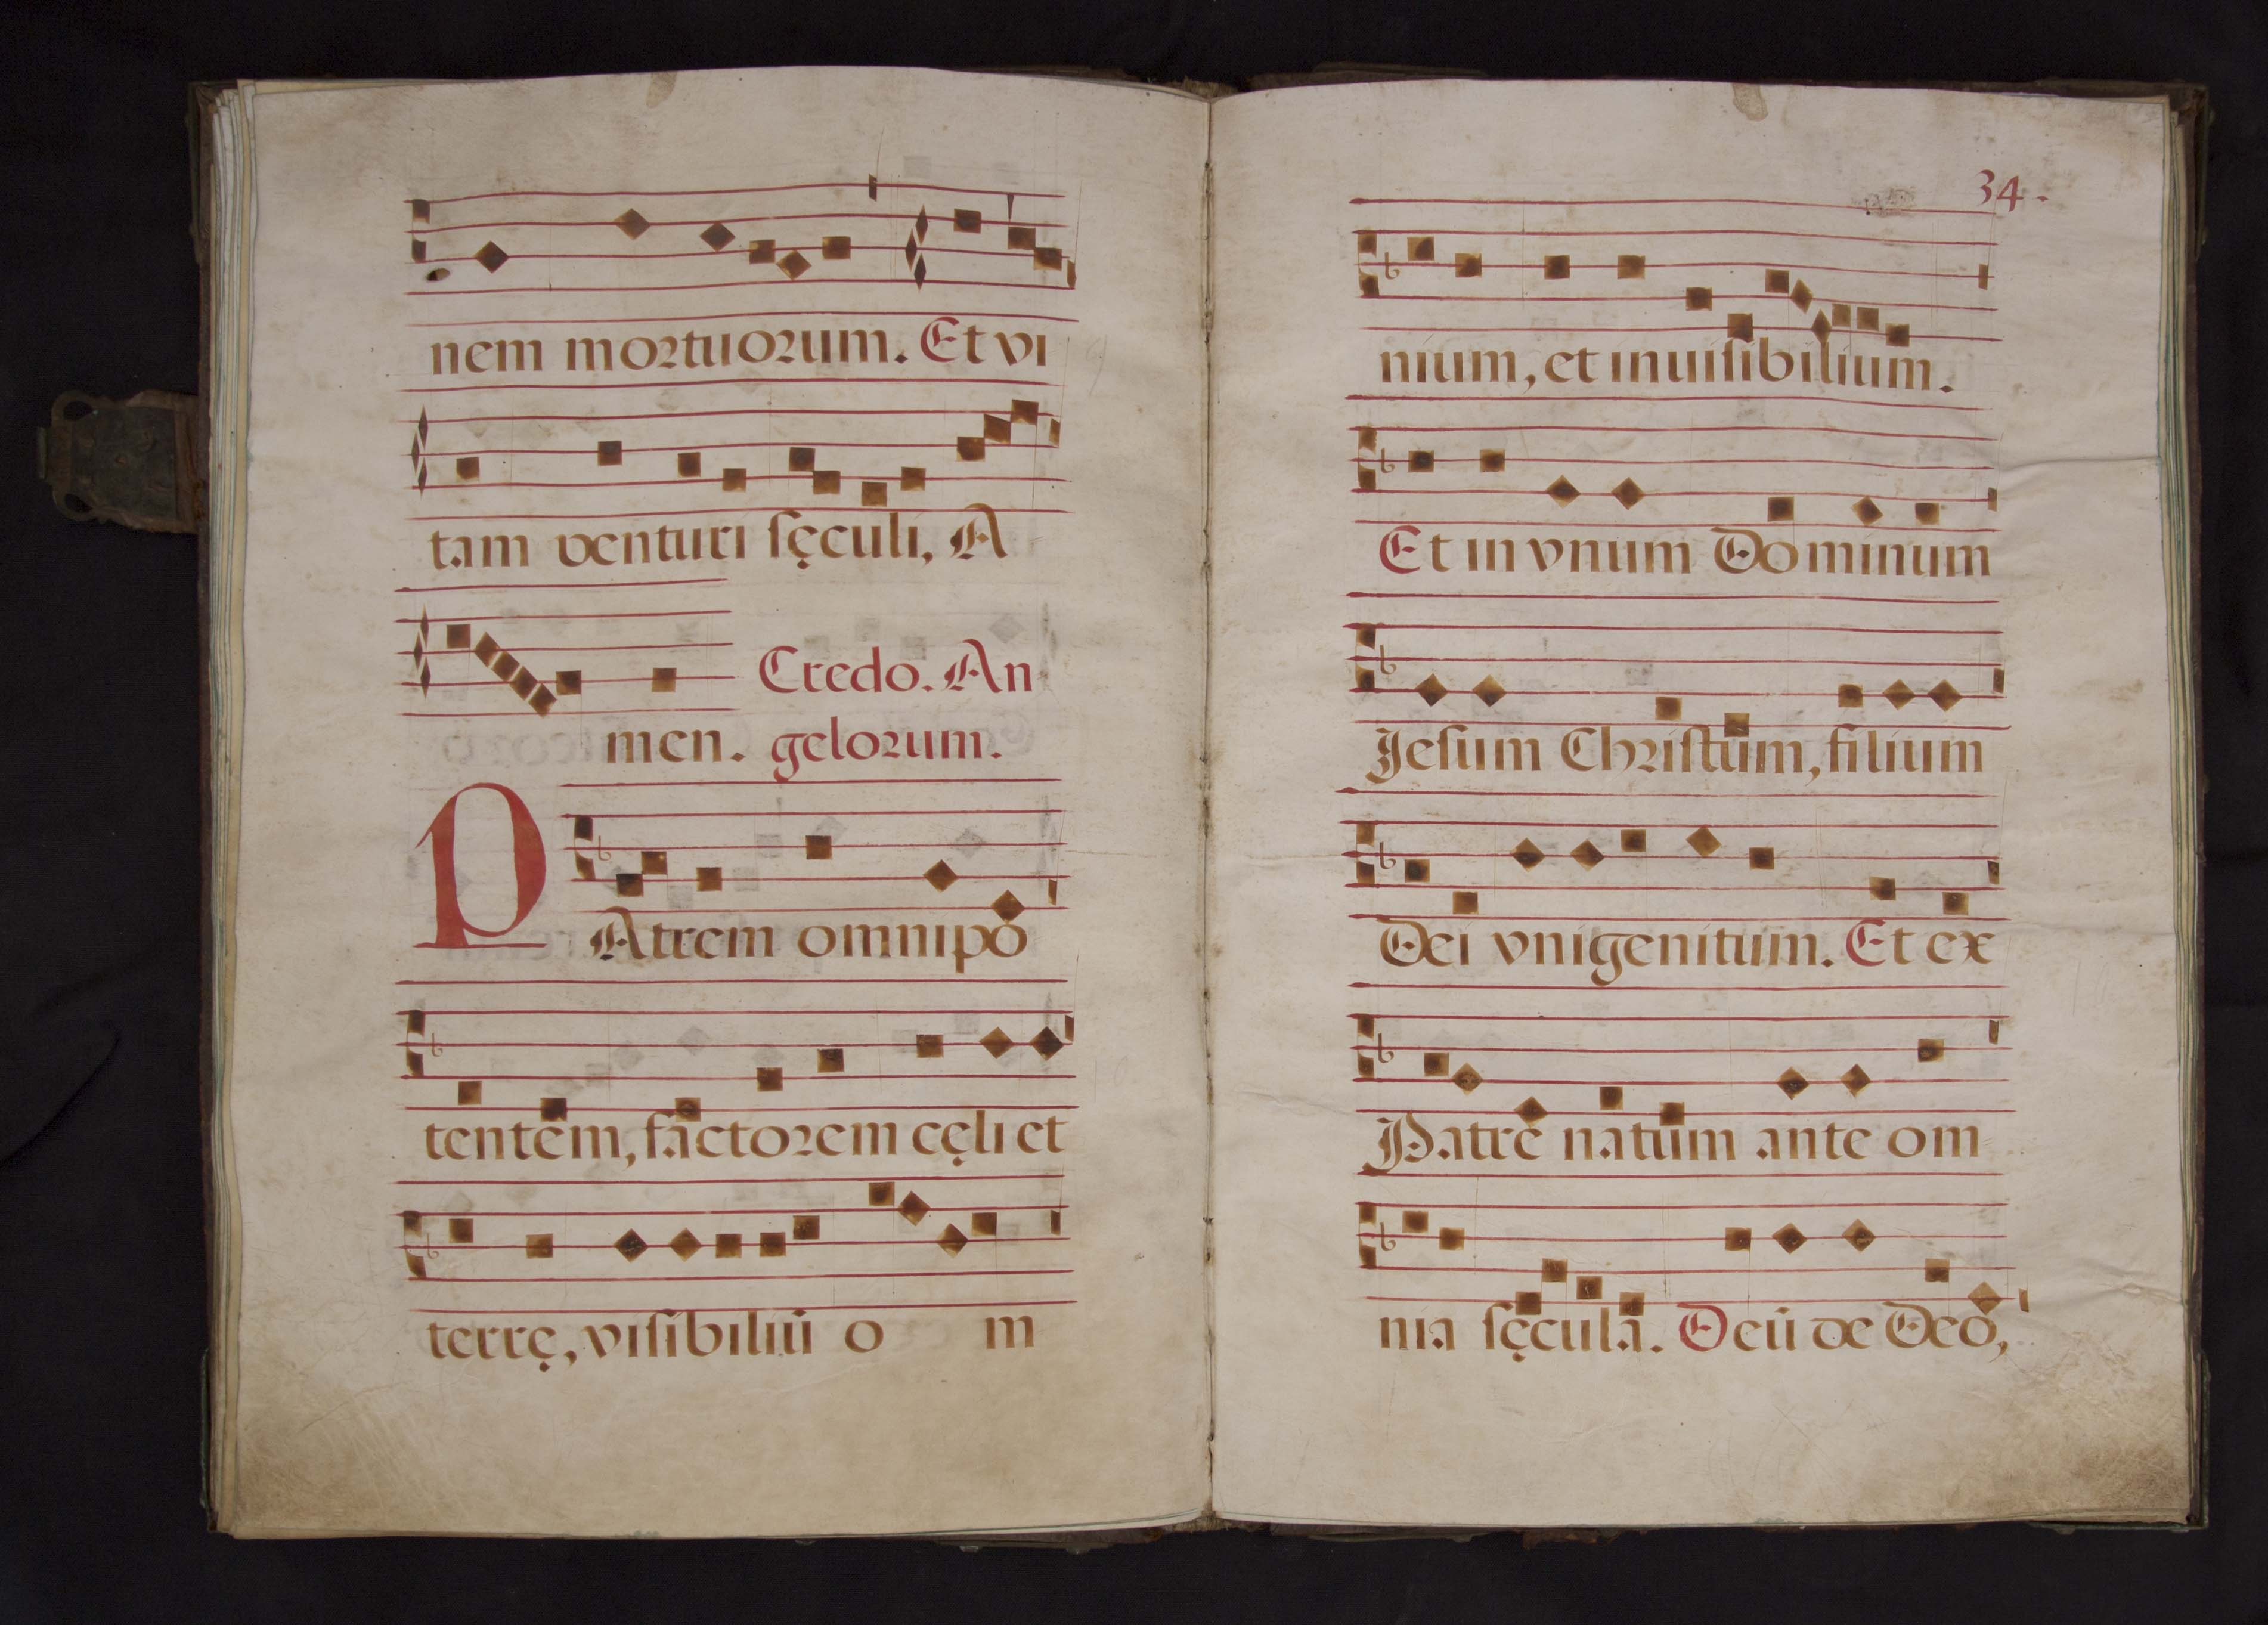 nem mortuorum. Et vi
tam venturi sęculi, A
Credo. An
men. gelorum.
PAtrem omnipo
tentem, factorem cęli et
terrę, visibiliū o m
34.
nium, et inuisibilium.
Et in vnum Dominum
Jesum Christum, filium
Dei vnigenitum. Et ex
Patre natum ante om
nia sęcula. Deū de Deo,